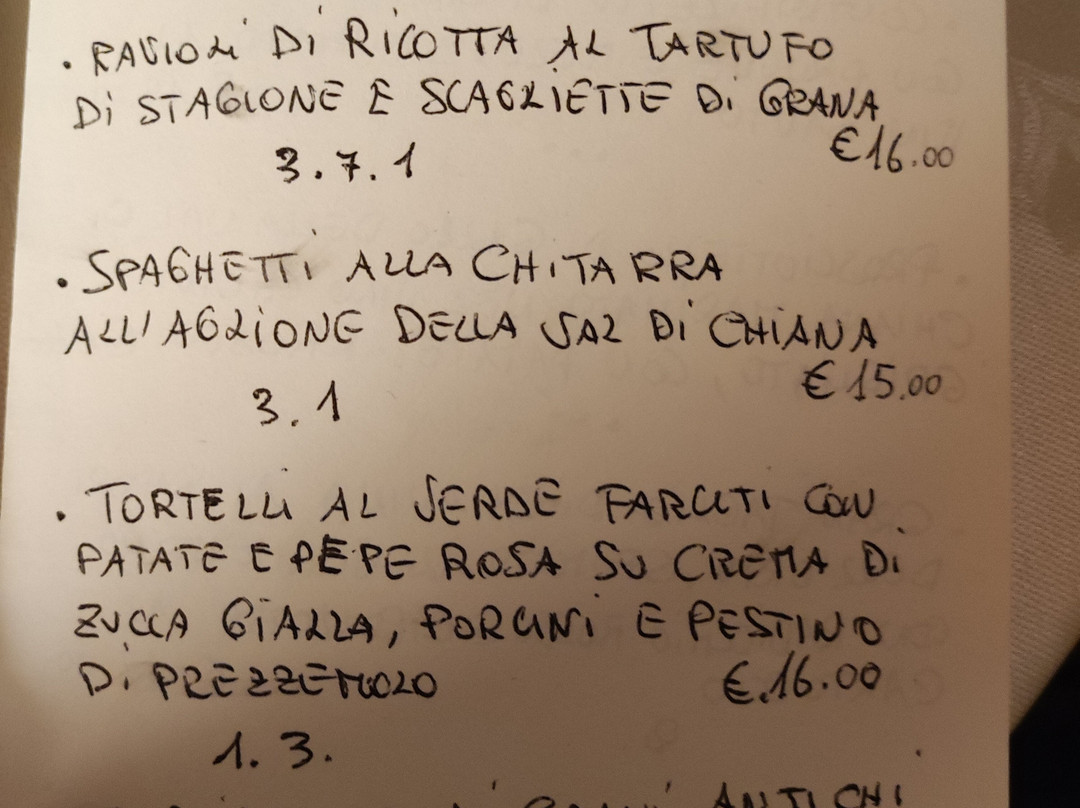 . RAVIOLI DI RICOTTA AL TARTUFO
DI STAGIONE E SCAGLIETTE DI GRANA
3.7.1 €16.00
. SPAGHETTI ALLA CHITARRA
ALL'AGLIONE DELLA VAL DI CHIANA
3.1 €15.00
. TORTELLI AL VERDE FARCITI CON
PATATE E PEPE ROSA SU CREMA DI
ZUCCA GIALLA, PORCINI E PESTINO
DI PREZZEMOLO €.16.00
1.3.
ANTICHI